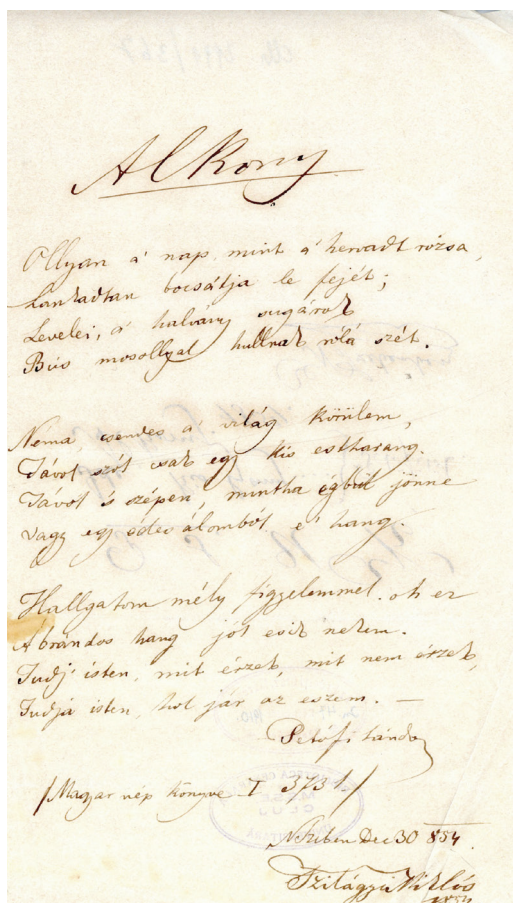 Alkony
Ollyan a' nap, mint a' hervadt rózsa,
Lankadtan bocsátja le fejét;
Levelei, a' halvány sugárok
Bús mosollyal hullnak róla szét.
Néma, csendes a' világ körűlem,
Távol szól csak egy kis estharang.
Távol 's szépen, mintha égbül jönne
Vagy egy édes álomból e' hang.
Hallgatom mély figyelemmel. oh ez
Ábrándos hang jól esik nekem.
Tudj' isten, mit érzek, mit nem érzek,
Tudja isten, hol jár az eszem. —
Petőfi Sándor
/Magyar nép könyve I 373 l/
N. Szeben Dec 30 854.
Szilágyi Miklós